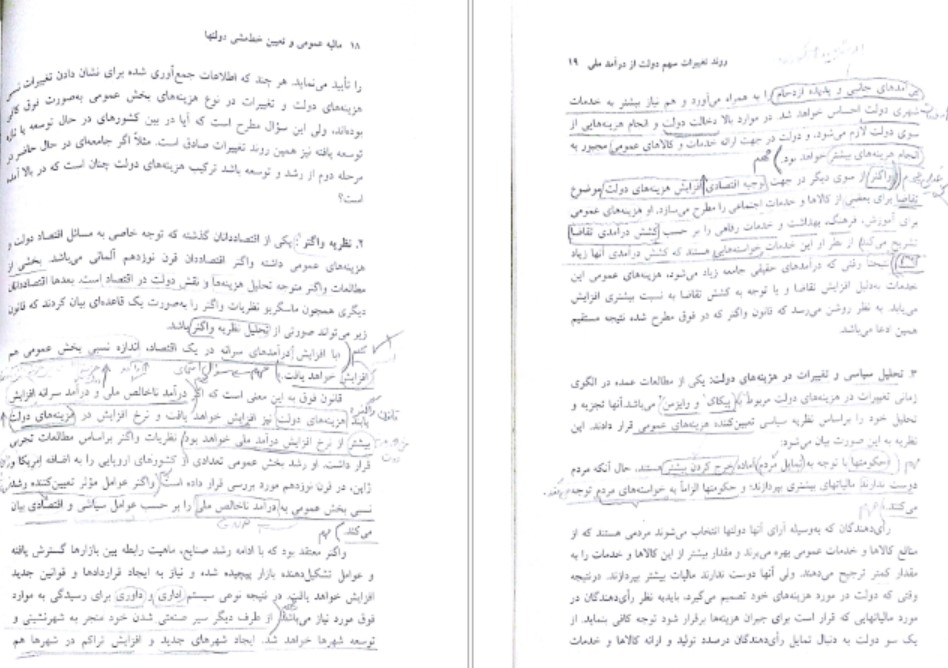 ۱۸ مالیه عمومی و تعیین خط‌مشی دولتها
را تأیید می‌نماید. هر چند که اطلاعات جمع‌آوری شده برای نشان دادن تغییرات نسبی
هزینه‌های دولت و تغییرات در نوع هزینه‌های بخش عمومی به‌صورت فوق کافی
بوده‌اند، ولی این سؤال مطرح است که آیا در بین کشورهای در حال توسعه یا تازه
توسعه یافته نیز همین روند تغییرات صادق است. مثلاً اگر جامعه‌ای در حال حاضر در
مرحله دوم از رشد و توسعه باشد ترکیب هزینه‌های دولت چنان است که در بالا آمده
است؟
۲. نظریه واگنر: یکی از اقتصاددانان گذشته که توجه خاصی به مسائل اقتصاد دولت و
هزینه‌های عمومی داشته واگنر اقتصاددان قرن نوزدهم آلمانی می‌باشد. بخشی از
مطالعات واگنر متوجه تحلیل هزینه‌ها و نقش دولت در اقتصاد است. بعدها اقتصاددانان
دیگری همچون ماسگریو نظریات واگنر را به‌صورت یک قاعده‌ای بیان کردند که قانون
زیر می‌تواند صورتی از تحلیل نظریه واگنر باشد.
با افزایش درآمدهای سرانه در یک اقتصاد، اندازه نسبی بخش عمومی هم
افزایش خواهد یافت.
قانون فوق به این معنی است که اگر درآمد ناخالص ملی و درآمد سرانه افزایش
یابند هزینه‌های دولت نیز افزایش خواهد یافت و نرخ افزایش در هزینه‌های دولت
بیشتر از نرخ افزایش درآمد ملی خواهد بود. نظریات واگنر براساس مطالعات تجربی
قرار داشت. او رشد بخش عمومی تعدادی از کشورهای اروپایی را به اضافه امریکا و
ژاپن، در قرن نوزدهم مورد بررسی قرار داده است. واگنر عوامل مؤثر تعیین‌کننده رشد
نسبی بخش عمومی به درآمد ناخالص ملی را بر حسب عوامل سیاسی و اقتصادی بیان
می‌کند.
واگنر معتقد بود که با ادامه رشد صنایع، ماهیت رابطه بین بازارها گسترش یافته
و عوامل تشکیل‌دهنده بازار پیچیده شده و نیاز به ایجاد قراردادها و قوانین جدید
افزایش خواهد یافت. در نتیجه نوعی سیستم اداری و داوری برای رسیدگی به موارد
فوق مورد نیاز می‌باشد. از طرف دیگر سیر صنعتی شدن خود منجر به شهرنشینی و
توسعه شهرها خواهد شد. ایجاد شهرهای جدید و افزایش تراکم در شهرها هم
روند تغییرات سهم دولت از درآمد ملی ۱۹
پی‌آمدهای جانبی و پدیده ازدحام را به همراه می‌آورد و هم نیاز بیشتر به خدمات
شهری دولت احساس خواهد شد. در موارد بالا دخالت دولت و انجام هزینه‌هایی از
سوی دولت لازم می‌شود، و دولت در جهت ارائه خدمات و کالاهای عمومی مجبور به
انجام هزینه‌های بیشتر خواهد بود.
واگنر از سوی دیگر در جهت توجیه اقتصادی افزایش هزینه‌های دولت موضوع
تقاضا برای بعضی از کالاها و خدمات اجتماعی را مطرح می‌سازد. او هزینه‌های عمومی
برای آموزش، فرهنگ، بهداشت و خدمات رفاهی را بر حسب کشش درآمدی تقاضا
تشریح می‌کند. از نظر او این خدمات خواسته‌هایی هستند که کشش درآمدی آنها زیاد
است. نتیجتاً وقتی که درآمدهای حقیقی جامعه زیاد می‌شود، هزینه‌های عمومی این
خدمات به‌دلیل افزایش تقاضا و با توجه به کشش تقاضا به نسبت بیشتری افزایش
می‌یابد. به نظر روشن می‌رسد که قانون واگنر که در فوق مطرح شده نتیجه مستقیم
همین ادعا می‌باشد.
۳. تحلیل سیاسی و تغییرات در هزینه‌های دولت: یکی از مطالعات عمده در الگوی
زمانی تغییرات در هزینه‌های دولت مربوط به پیکاک و وایزمن می‌باشد. آنها تجزیه و
تحلیل خود را براساس نظریه سیاسی تعیین‌کننده هزینه‌های عمومی قرار دادند. این
نظریه به این صورت بیان می‌شود:
حکومتها با توجه به تمایل مردم آماده خرج کردن بیشتر هستند، حال آنکه مردم
دوست ندارند مالیاتهای بیشتری بپردازند؛ و حکومتها الزاماً به خواسته‌های مردم توجه
می‌کنند.
رأی‌دهندگان که به‌وسیله آرای آنها دولتها انتخاب می‌شوند مردمی هستند که از
منافع کالاها و خدمات عمومی بهره می‌برند و مقدار بیشتر از این کالاها و خدمات را به
مقدار کمتر ترجیح می‌دهند. ولی آنها دوست ندارند مالیات بیشتر بپردازند. درنتیجه
وقتی که دولت در مورد هزینه‌های خود تصمیم می‌گیرد، بایدبه نظر رأی‌دهندگان در
مورد مالیاتهایی که قرار است برای جبران هزینه‌ها برقرار شود توجه کافی بنماید. از
یک سو دولت به دنبال تمایل رأی‌دهندگان درصدد تولید و ارائه کالاها و خدمات